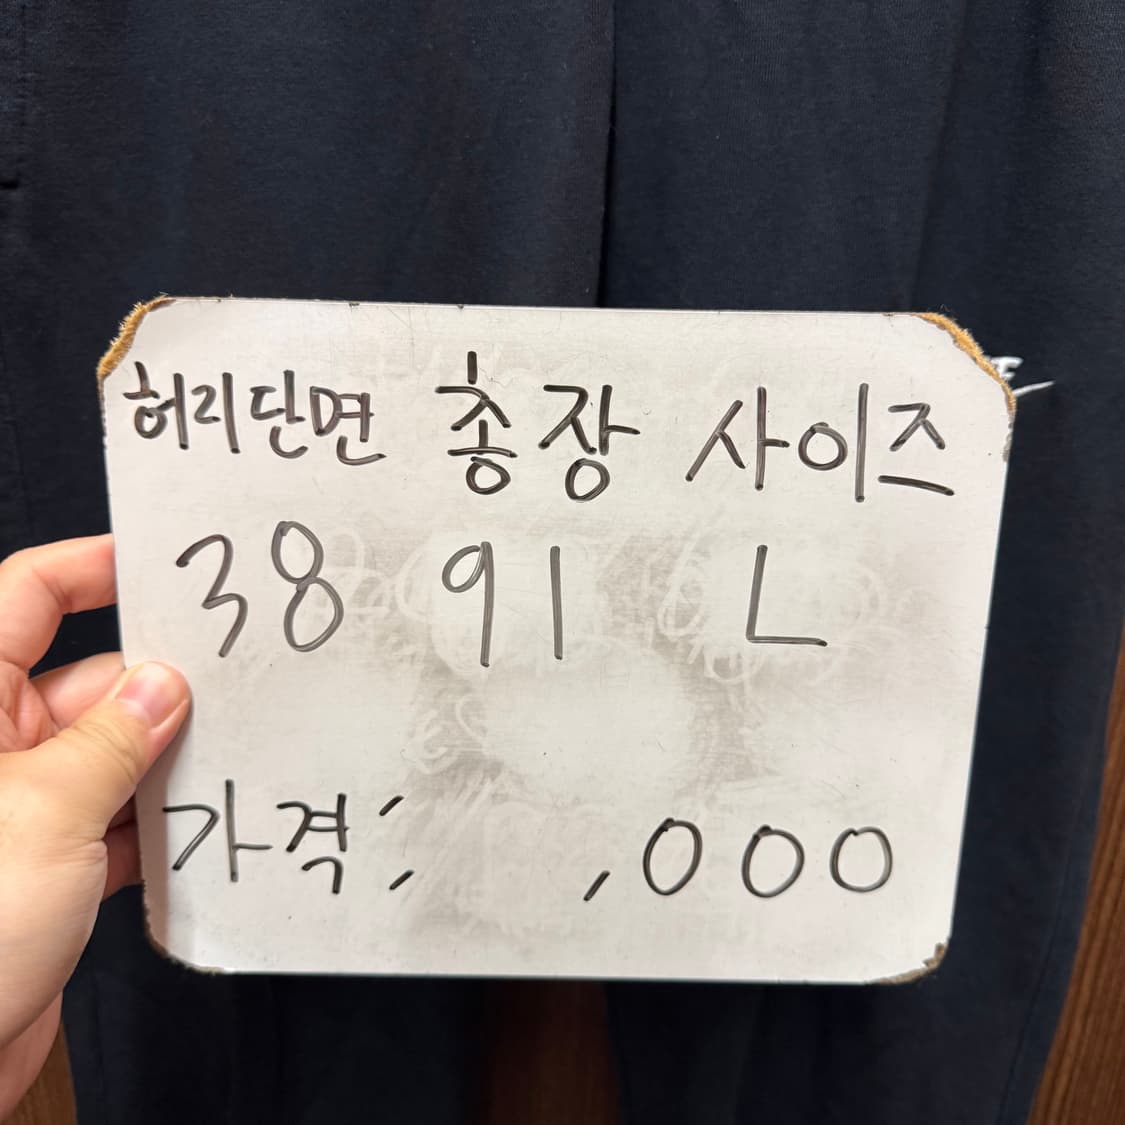 허리단면 총장 사이즈
38 91 L
가격: ,000